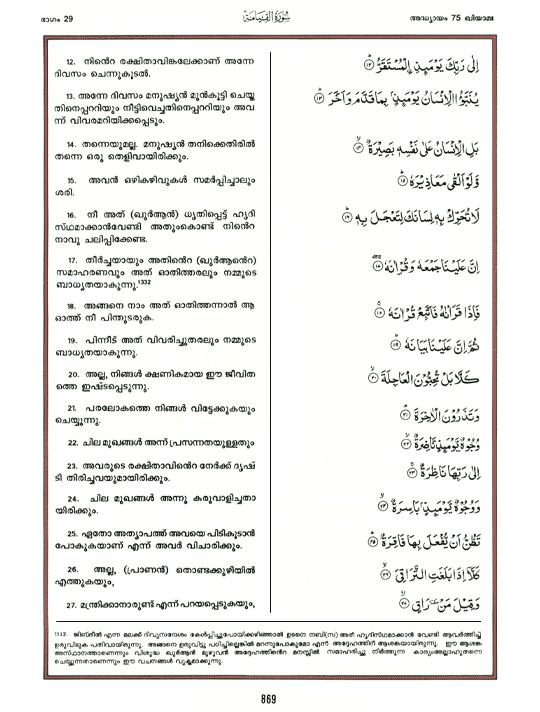 ഭാഗം 29
سُورَةُ الْقِيَامَةِ
അദ്ധ്യായം 75 ഖിയാമഃ
12. നിൻെറ രക്ഷിതാവിങ്കലേക്കാണ് അന്നേ
ദിവസം ചെന്നുകൂടൽ.
إِلَىٰ رَبِّكَ يَوْمَئِذٍ الْمُسْتَقَرُّ ﴿١٢﴾
13. അന്നേ ദിവസം മനുഷ്യൻ മുൻകൂട്ടി ചെയ്ത
തിനെപ്പററിയും നീട്ടിവെച്ചതിനെപ്പററിയും അവ
ന്ന് വിവരമറിയിക്കപ്പെടും.
يُنَبَّؤُا الْإِنْسَانُ يَوْمَئِذٍ بِمَا قَدَّمَ وَأَخَّرَ ﴿١٣﴾
14. തന്നെയുമല്ല. മനുഷ്യൻ തനിക്കെതിരിൽ
തന്നെ ഒരു തെളിവായിരിക്കും.
بَلِ الْإِنْسَانُ عَلَىٰ نَفْسِهِ بَصِيرَةٌ ﴿١٤﴾
15. അവൻ ഒഴികഴിവുകൾ സമർപ്പിച്ചാലും
ശരി.
وَلَوْ أَلْقَىٰ مَعَاذِيرَهُ ﴿١٥﴾
16. നീ അത് (ഖുർആൻ) ധൃതിപ്പെട്ട് ഹൃദി
സ്ഥമാക്കാൻവേണ്ടി അതുംകൊണ്ട് നിൻെറ
നാവു ചലിപ്പിക്കേണ്ട.
لَا تُحَرِّكْ بِهِ لِسَانَكَ لِتَعْجَلَ بِهِ ﴿١٦﴾
17. തീർച്ചയായും അതിൻെറ (ഖുർആൻെറ)
സമാഹരണവും അത് ഓതിത്തരലും നമ്മുടെ
ബാധ്യതയാകുന്നു.¹³³²
إِنَّ عَلَيْنَا جَمْعَهُ وَقُرْآنَهُ ﴿١٧﴾
18. അങ്ങനെ നാം അത് ഓതിത്തന്നാൽ ആ
ഓത്ത് നീ പിന്തുടരുക.
فَإِذَا قَرَأْنَاهُ فَاتَّبِعْ قُرْآنَهُ ﴿١٨﴾
19. പിന്നീട് അത് വിവരിച്ചുതരലും നമ്മുടെ
ബാധ്യതയാകുന്നു.
ثُمَّ إِنَّ عَلَيْنَا بَيَانَهُ ﴿١٩﴾
20. അല്ല, നിങ്ങൾ ക്ഷണികമായ ഈ ജീവിത
ത്തെ ഇഷ്ടപ്പെടുന്നു.
كَلَّا بَلْ تُحِبُّونَ الْعَاجِلَةَ ﴿٢٠﴾
21. പരലോകത്തെ നിങ്ങൾ വിട്ടേക്കുകയും
ചെയ്യുന്നു.
وَتَذَرُونَ الْآخِرَةَ ﴿٢١﴾
22. ചില മുഖങ്ങൾ അന്ന് പ്രസന്നതയുള്ളതും
وُجُوهٌ يَوْمَئِذٍ نَاضِرَةٌ ﴿٢٢﴾
23. അവരുടെ രക്ഷിതാവിൻെറ നേർക്ക് ദൃഷ്
ടി തിരിച്ചവയുമായിരിക്കും.
إِلَىٰ رَبِّهَا نَاظِرَةٌ ﴿٢٣﴾
24. ചില മുഖങ്ങൾ അന്നു കരുവാളിച്ചതാ
യിരിക്കും.
وَوُجُوهٌ يَوْمَئِذٍ بَاسِرَةٌ ﴿٢٤﴾
25. ഏതോ അത്യാപത്ത് അവയെ പിടികൂടാൻ
പോകുകയാണ് എന്ന് അവർ വിചാരിക്കും.
تَظُنُّ أَنْ يُفْعَلَ بِهَا فَاقِرَةٌ ﴿٢٥﴾
26. അല്ല, (പ്രാണൻ) തൊണ്ടക്കുഴിയിൽ
എത്തുകയും,
كَلَّا إِذَا بَلَغَتِ التَّرَاقِيَ ﴿٢٦﴾
27. മന്ത്രിക്കാനാരുണ്ട് എന്ന് പറയപ്പെടുകയും,
وَقِيلَ مَنْ رَاقٍ ﴿٢٧﴾
1332. ജിബ്‌രീൽ എന്ന മലക്ക് ദിവ്യസന്ദേശം കേൾപ്പിച്ചുപോയിക്കഴിഞ്ഞാൽ ഉടനെ നബി(സ) അത് ഹൃദിസ്ഥമാക്കാൻ വേണ്ടി ആവർത്തിച്ച്
ഉരുവിടുക പതിവായിരുന്നു. അങ്ങനെ ഉരുവിട്ടു പഠിച്ചില്ലെങ്കിൽ മറന്നുപോകുമോ എന്ന് അദ്ദേഹത്തിന് ആശങ്കയായിരുന്നു. ഈ ആശങ്ക
അസ്ഥാനത്താണെന്നും വിശുദ്ധ ഖുർആൻ മുഴുവൻ അദ്ദേഹത്തിൻെറ മനസ്സിൽ സമാഹരിച്ചു നിർത്തുന്ന കാര്യംഅല്ലാഹുതന്നെ
ചെയ്യുന്നതാണെന്നും ഈ വചനങ്ങൾ വ്യക്തമാക്കുന്നു.
869